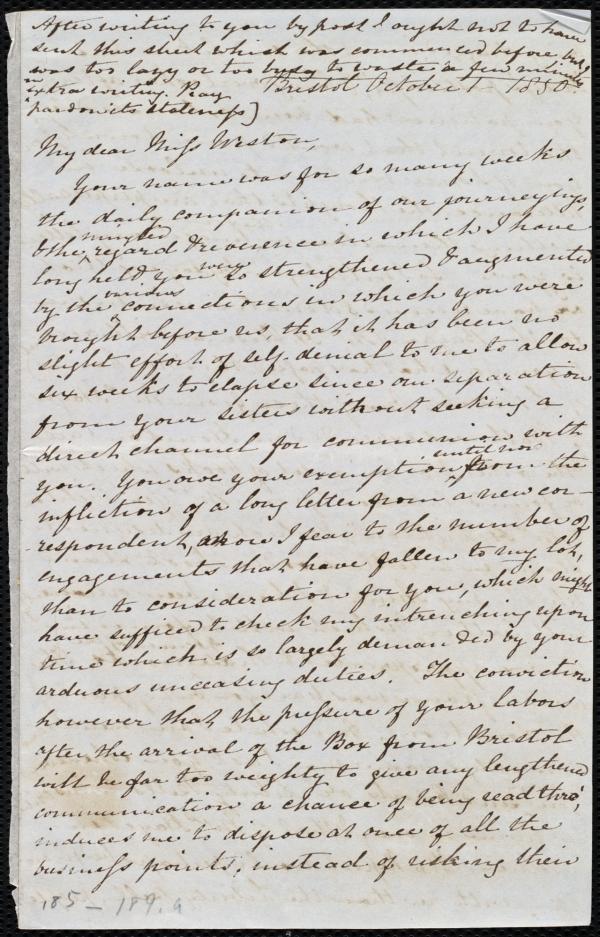 After writing to you by post I ought not to have
sent this sheet which was commenced before but I
was too lazy or too busy to waste a few minutes
in extra writing. Pray
pardon its staleness]
Bristol October 1 - 1850.
My dear Miss Weston,
Your name was for so many weeks
the daily companion of our journeyings,
& the mingled regard & reverence in which I have
long held you were so strengthened & augmented
by the various connections in which you were
brought before us, that it has been no
slight effort of self-denial to me to allow
six weeks to elapse since our separation
from your sisters without seeking a
direct channel for communion with
you. You owe your exemption until now from the
infliction of a long letter from a new cor-
respondent, more I fear to the number of
engagements that have fallen to my lot,
than to consideration for you, which might
have sufficed to check my intrenching upon
time which is so largely demanded by your
arduous unceasing duties. The conviction
however that the pressure of your labors
after the arrival of the Box from Bristol
will be far too weighty to give any lengthened
communication a chance of being read thro',
induces me to dispose at once of all the
business points, instead of risking their
185 - 189. a